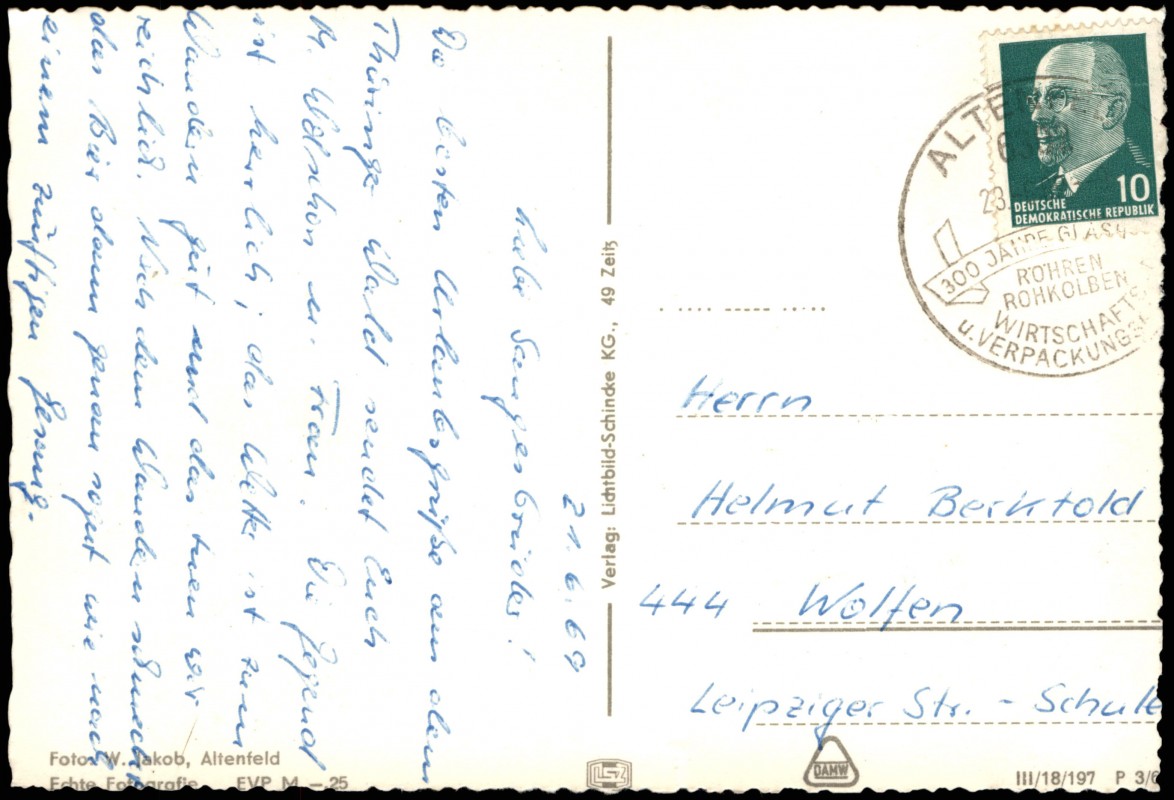 21.6.69
Liebe Sangesbrüder!
Die besten Urlaubsgrüße aus dem
Thüringer Wald sendet Euch
M. u. Frau. Die Gegend
ist herrlich; das Wetter ist zum
Wandern gut und das tuen wir
reichlich. Nach dem Wandern schmeckt
das Bier dann genau so gut wie nach
einem zünftigen Gesang.
Verlag: Lichtbild-Schincke KG., 49 Zeitz
DEUTSCHE
DEMOKRATISCHE REPUBLIK
10
300 JAHRE
RÖHREN
ROHKOLBEN
WIRTSCHAFTS
u. VERPACKUNGS
Herrn
Helmut Berktold
444 Wolfen
Leipziger Str. - Schule
Foto: W. Jakob, Altenfeld
Echte Fotografie EVP M —.25
DAMW
III/18/197 P 3/6